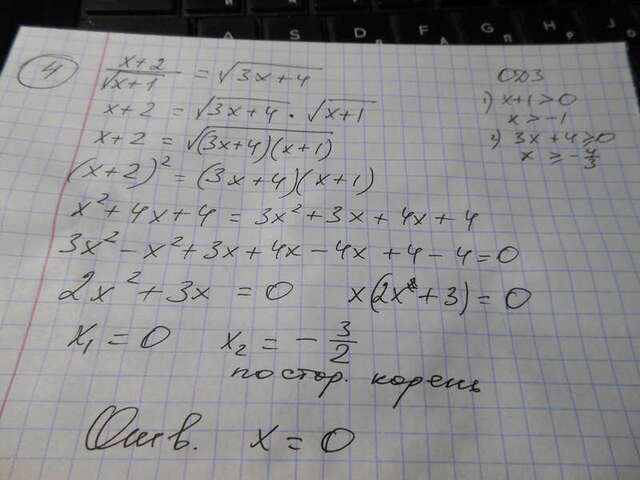 4 (x+2)/√(x+1) = √(3x+4)
ОДЗ
x+2 = √(3x+4) · √(x+1)
1) x+1>0
x > -1
x+2 = √((3x+4)(x+1))
2) 3x+4≥0
x ≥ -4/3
(x+2)² = (3x+4)(x+1)
x²+4x+4 = 3x²+3x+4x+4
3x² - x² + 3x + 4x - 4x + 4 - 4 = 0
2x² + 3x = 0 x(2x + 3) = 0
x₁ = 0 x₂ = - 3/2
постор. корень
Отв. x = 0